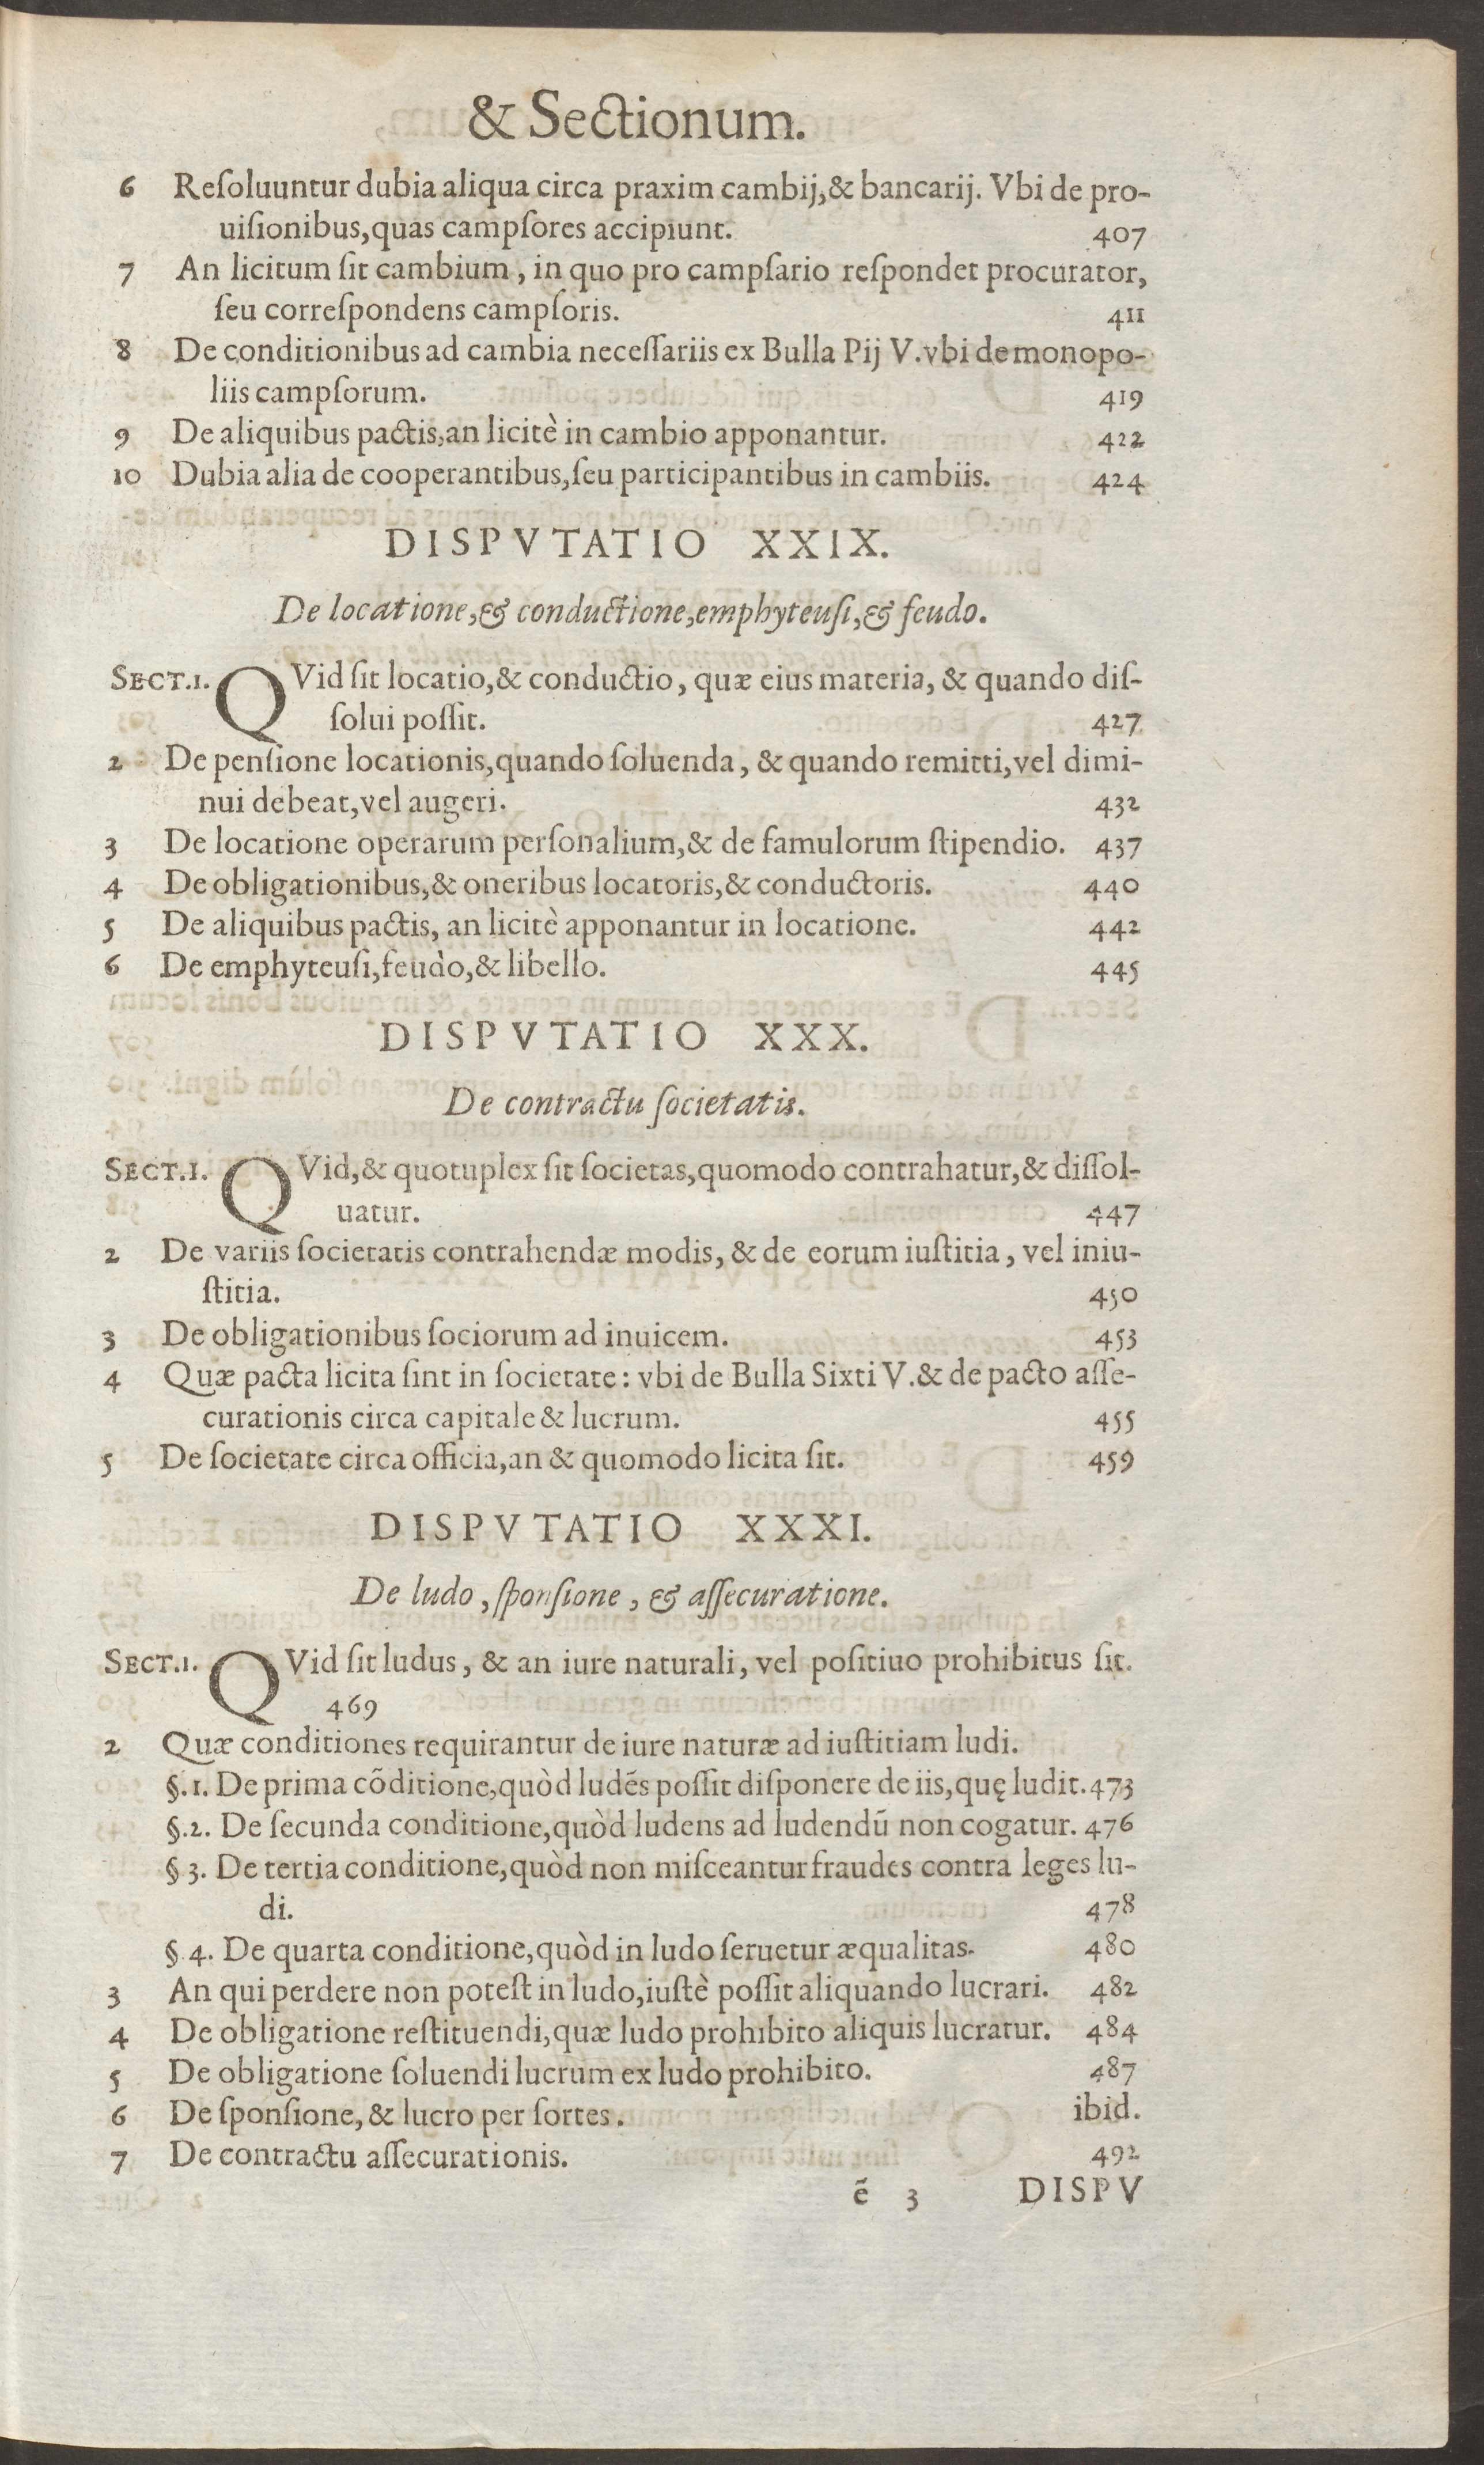 & Sectionum.
6 Reſoluuntur dubia aliqua circa praxim cambij,& bancarij. Vbi de pro-
uiſionibus,quas campſores accipiunt. 407
7 An licitum ſit cambium, in quo pro campſario reſpondet procurator,
ſeu correſpondens campſoris. 411
8 De conditionibus ad cambia neceſſariis ex Bulla Pij V.vbi de monopo-
liis campſorum. 419
9 De aliquibus pactis,an licitè in cambio apponantur. 422
10 Dubia alia de cooperantibus,ſeu participantibus in cambiis. 424
DISPVTATIO XXIX.
De locatione,& conductione,emphyteuſi,& feudo.
SECT.1. QVid ſit locatio,& conductio, quæ eius materia, & quando diſ-
ſolui poſſit. 427
2 De penſione locationis,quando ſoluenda, & quando remitti,vel dimi-
nui debeat,vel augeri. 432
3 De locatione operarum perſonalium,& de famulorum ſtipendio. 437
4 De obligationibus,& oneribus locatoris,& conductoris. 440
5 De aliquibus pactis, an licitè apponantur in locatione. 442
6 De emphyteuſi,feudo,& libello. 445
DISPVTATIO XXX.
De contractu ſocietatis.
SECT.1. QVid,& quotuplex ſit ſocietas,quomodo contrahatur,& diſſol-
uatur. 447
2 De variis ſocietatis contrahendæ modis, & de eorum iuſtitia, vel iniu-
ſtitia. 450
3 De obligationibus ſociorum ad inuicem. 453
4 Quæ pacta licita ſint in ſocietate: vbi de Bulla Sixti V.& de pacto aſſe-
curationis circa capitale & lucrum. 455
5 De ſocietate circa officia,an & quomodo licita ſit. 459
DISPVTATIO XXXI.
De ludo, ſponſione, & aſſecuratione.
SECT.1. QVid ſit ludus, & an iure naturali, vel poſitiuo prohibitus ſit.
469
2 Quæ conditiones requirantur de iure naturæ ad iuſtitiam ludi.
§.1. De prima cõditione,quòd ludẽs poſſit diſponere de iis,quę ludit.473
§.2. De ſecunda conditione,quòd ludens ad ludendũ non cogatur. 476
§ 3. De tertia conditione,quòd non miſceantur fraudes contra leges lu-
di. 478
§ 4. De quarta conditione,quòd in ludo ſeruetur æqualitas. 480
3 An qui perdere non poteſt in ludo,iuſtè poſſit aliquando lucrari. 482
4 De obligatione reſtituendi,quæ ludo prohibito aliquis lucratur. 484
5 De obligatione ſoluendi lucrum ex ludo prohibito. 487
6 De ſponſione, & lucro per ſortes. ibid.
7 De contractu aſſecurationis. 492
ẽ 3 DISPV